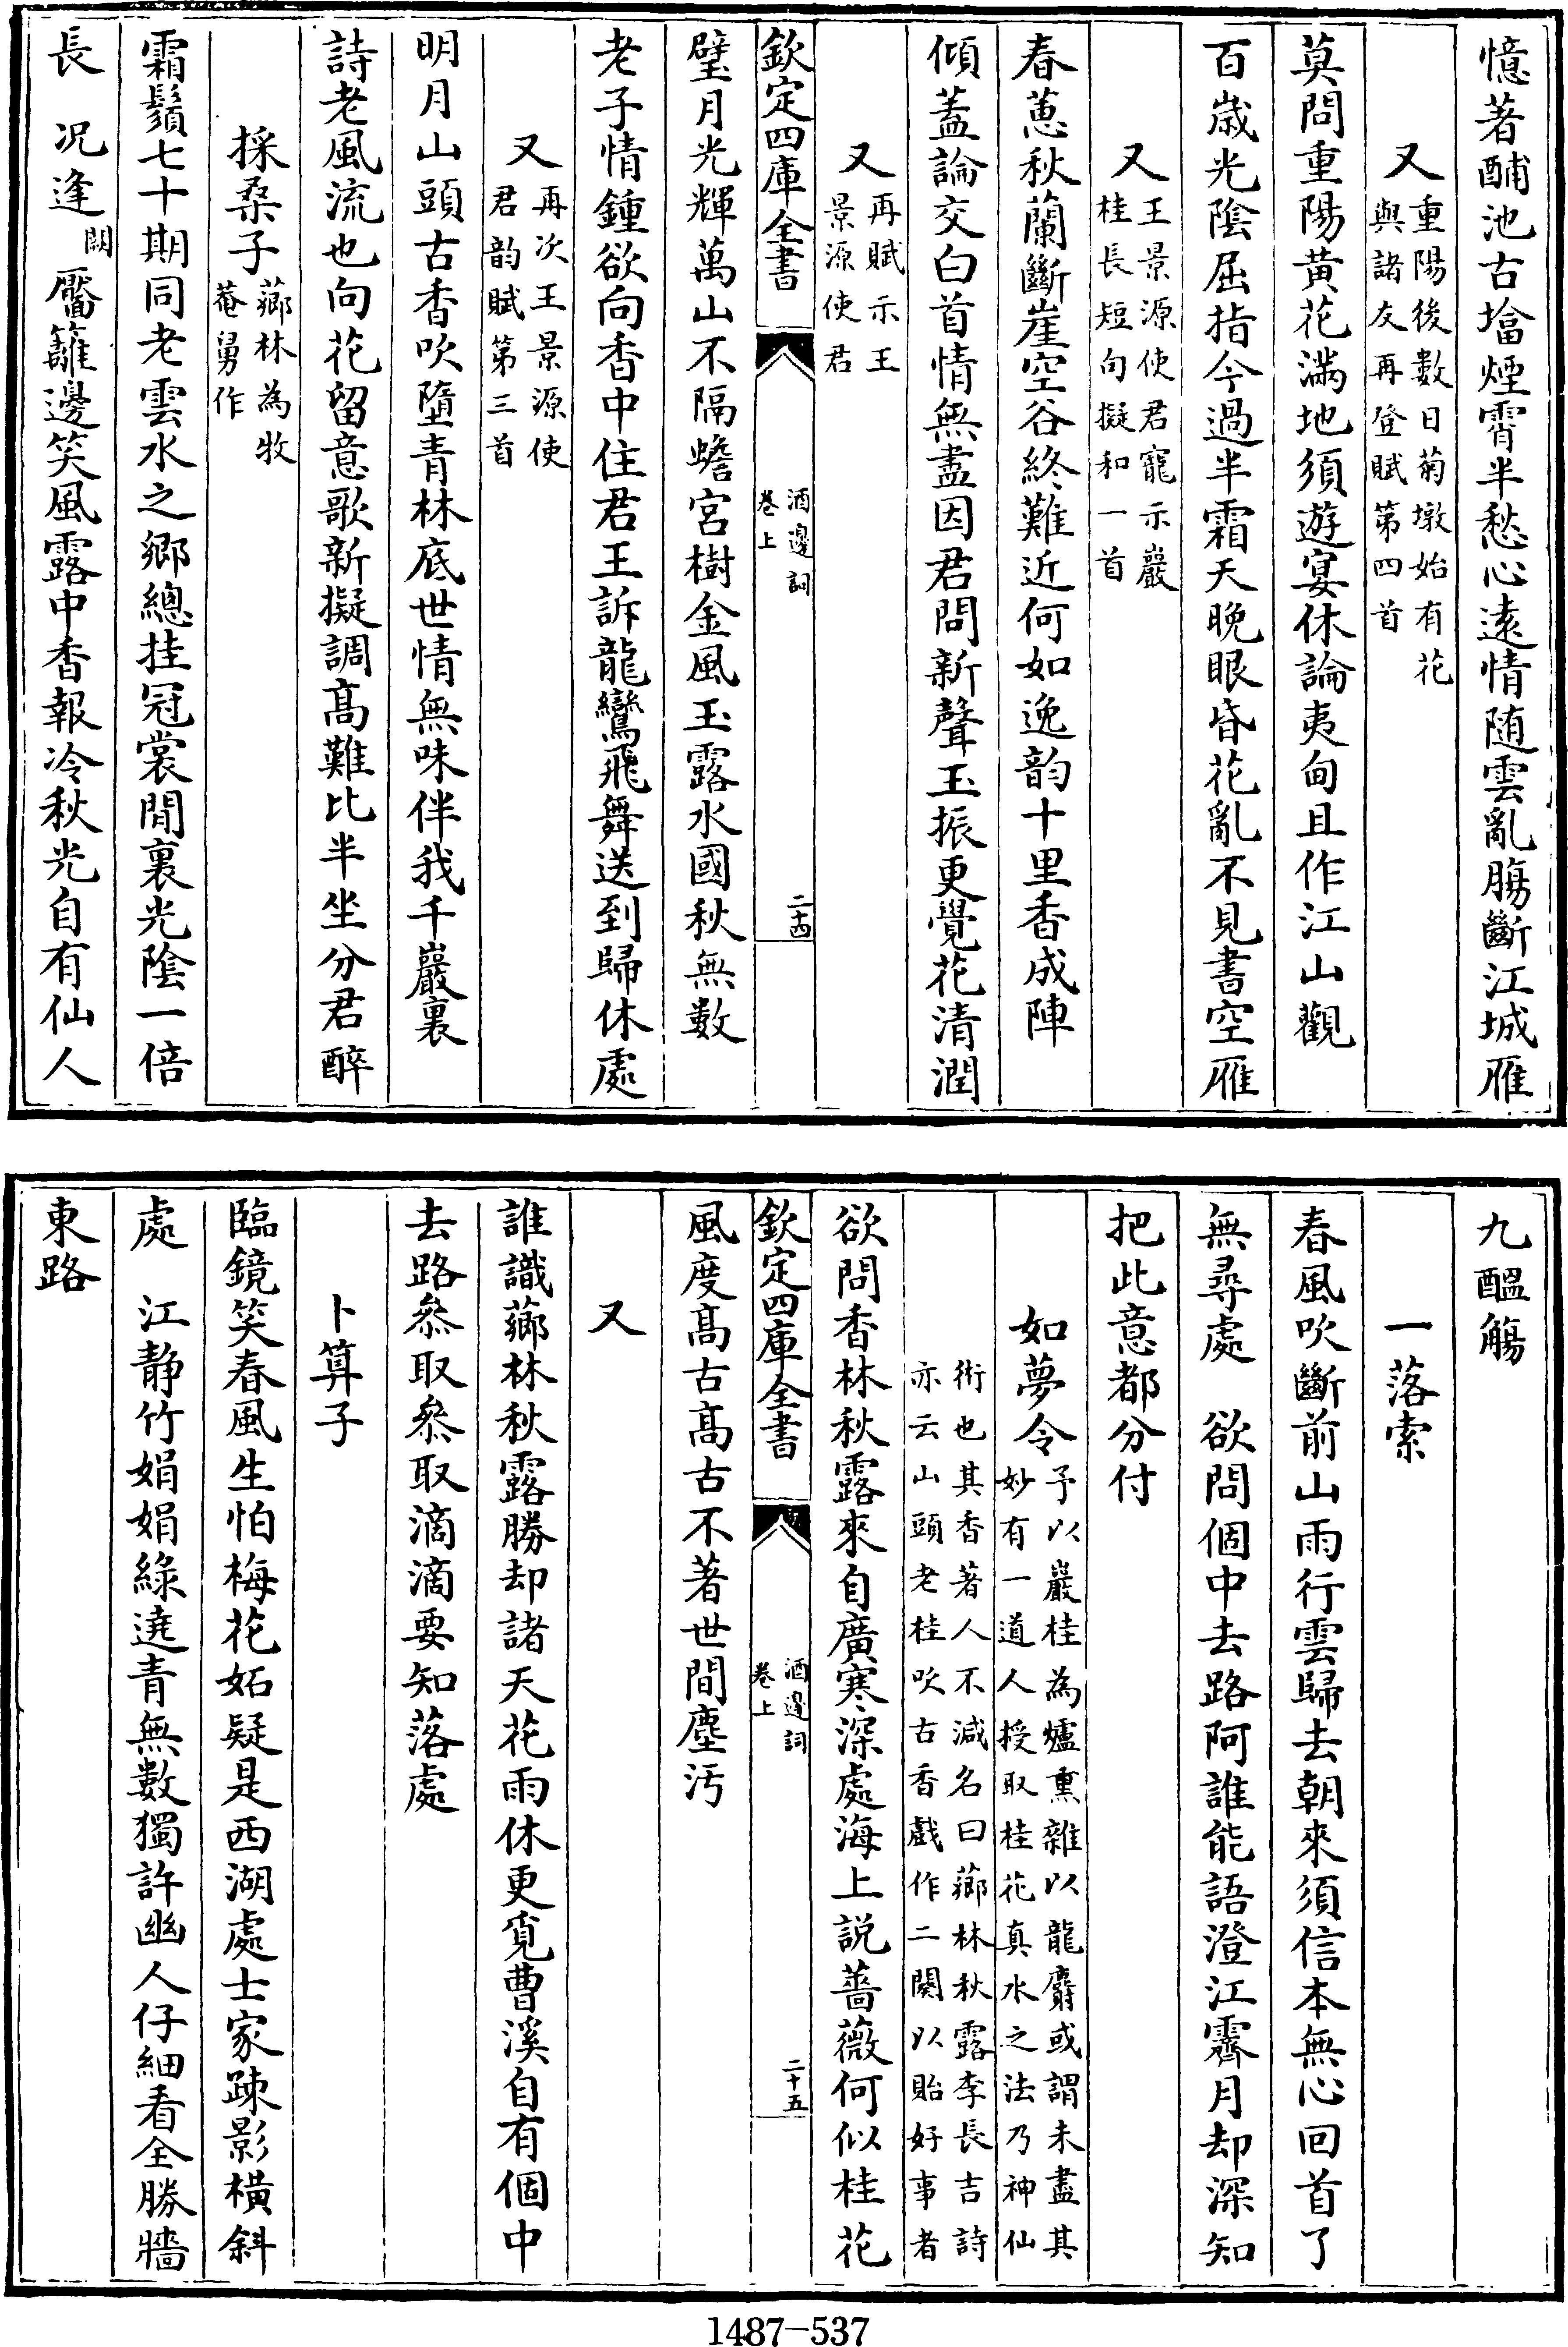 憶著酺池古墖煙霄半愁心遠情随雲亂腸斷江城雁
又重陽後數日菊墩始有花
與諸友再登賦第四首
莫問重陽黄花滿地須遊宴休論夷甸且作江山觀
百歳光陰屈指今過半霜天晚眼昏花亂不見書空雁
又王景源使君寵示巖
桂長短句擬和一首
春蕙秋蘭斷崖空谷終難近何如逸韵十里香成陣
傾蓋論交白首情無盡因君問新聲玉振更覺花清潤
又再賦示王
景源使君
欽定四庫全書
酒邊詞
卷上
二十四
璧月光輝萬山不隔蟾宫樹金風玉露水國秋無數
老子情鍾欲向香中住君王訴龍鸞飛舞送到歸休處
又再次王景源使
君韵賦第三首
明月山頭古香吹墮青林底世情無味伴我千巖裏
詩老風流也向花留意歌新擬調髙難比半坐分君醉
採桑子薌林為牧
菴舅作
霜鬚七十期同老雲水之鄉總挂冠裳閒裏光陰一倍
長　况逢闕靨籬邊笑風露中香報冷秋光自有仙人
九醖觴
一落索
春風吹斷前山雨行雲歸去朝來須信本無心回首了
無尋處　欲問個中去路阿誰能語澄江霽月却深知
把此意都分付
如夢令予以巖桂為爐熏雜以龍麝或謂未盡其
妙有一道人授取桂花真水之法乃神仙
術也其香著人不減名曰薌林秋露李長吉詩
亦云山頭老桂吹古香戲作二闋以貽好事者
欲問香林秋露來自廣寒深處海上説薔薇何似桂花
欽定四庫全書
酒邊詞
卷上
二十五
風度髙古髙古不著世間塵汚
又
誰識薌林秋露勝却諸天花雨休更覓曹溪自有個中
去路叅取叅取滴滴要知落處
卜算子
臨鏡笑春風生怕梅花妬疑是西湖處士家踈影横斜
處　江静竹娟娟綠遶青無數獨許幽人仔細看全勝牆
東路
1487-537